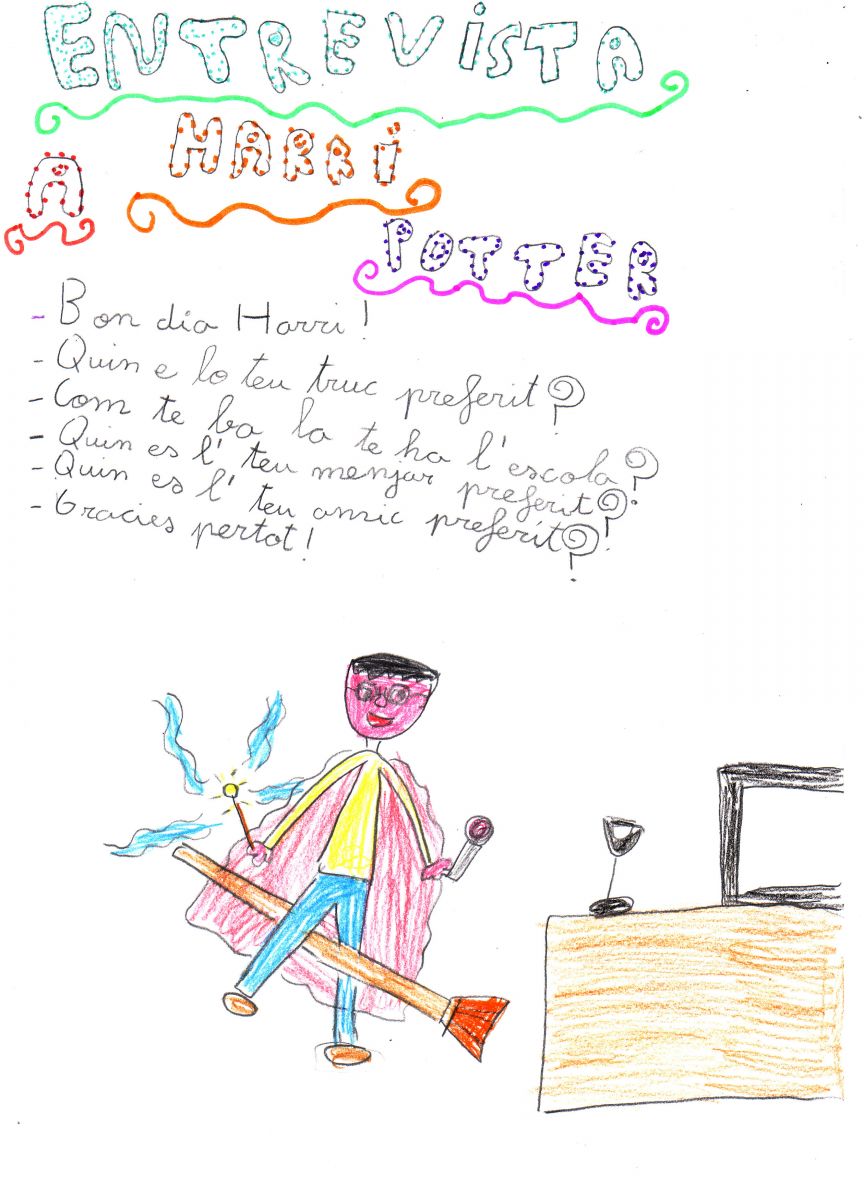 ENTREVISTA
A HARRI
POTTER
- Bon dia Harri!
- Quin e lo teu truc preferit?
- Com te ba la te ha l'escola?
- Quin es l' teu menjar preferit?
- Quin es l' teu amic preferit?
- Gracies pertot!